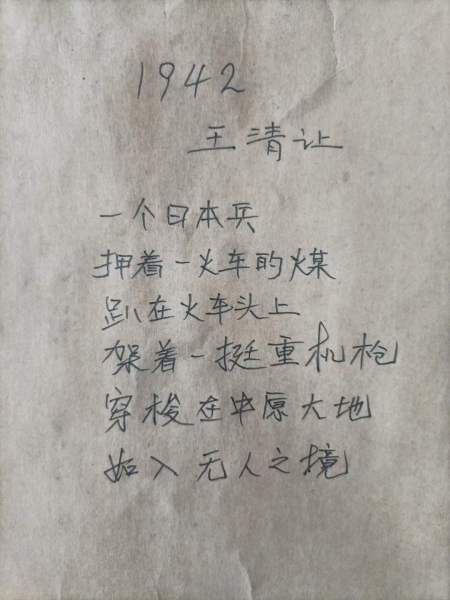 1942
王清让
一个日本兵
押着一火车的煤
趴在火车头上
架着一挺重机枪
穿梭在中原大地
如入无人之境